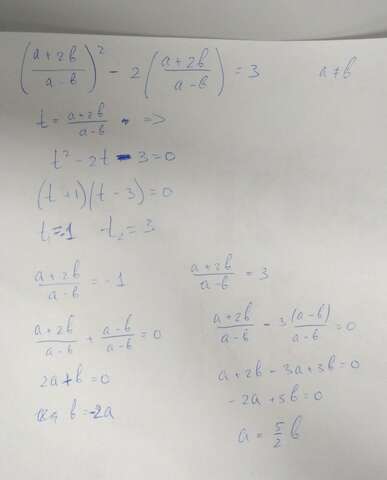 (a+2b / a-b)² - 2(a+2b / a-b) = 3 a≠b
t = a+2b / a-b =>
t² - 2t - 3 = 0
(t+1)(t-3) = 0
t₁=-1 t₂=3
a+2b / a-b = -1
a+2b / a-b + a-b / a-b = 0
2a+b=0
b=-2a
a+2b / a-b = 3
a+2b / a-b - 3(a-b) / a-b = 0
a+2b-3a+3b=0
-2a+5b=0
a = 5/2 b